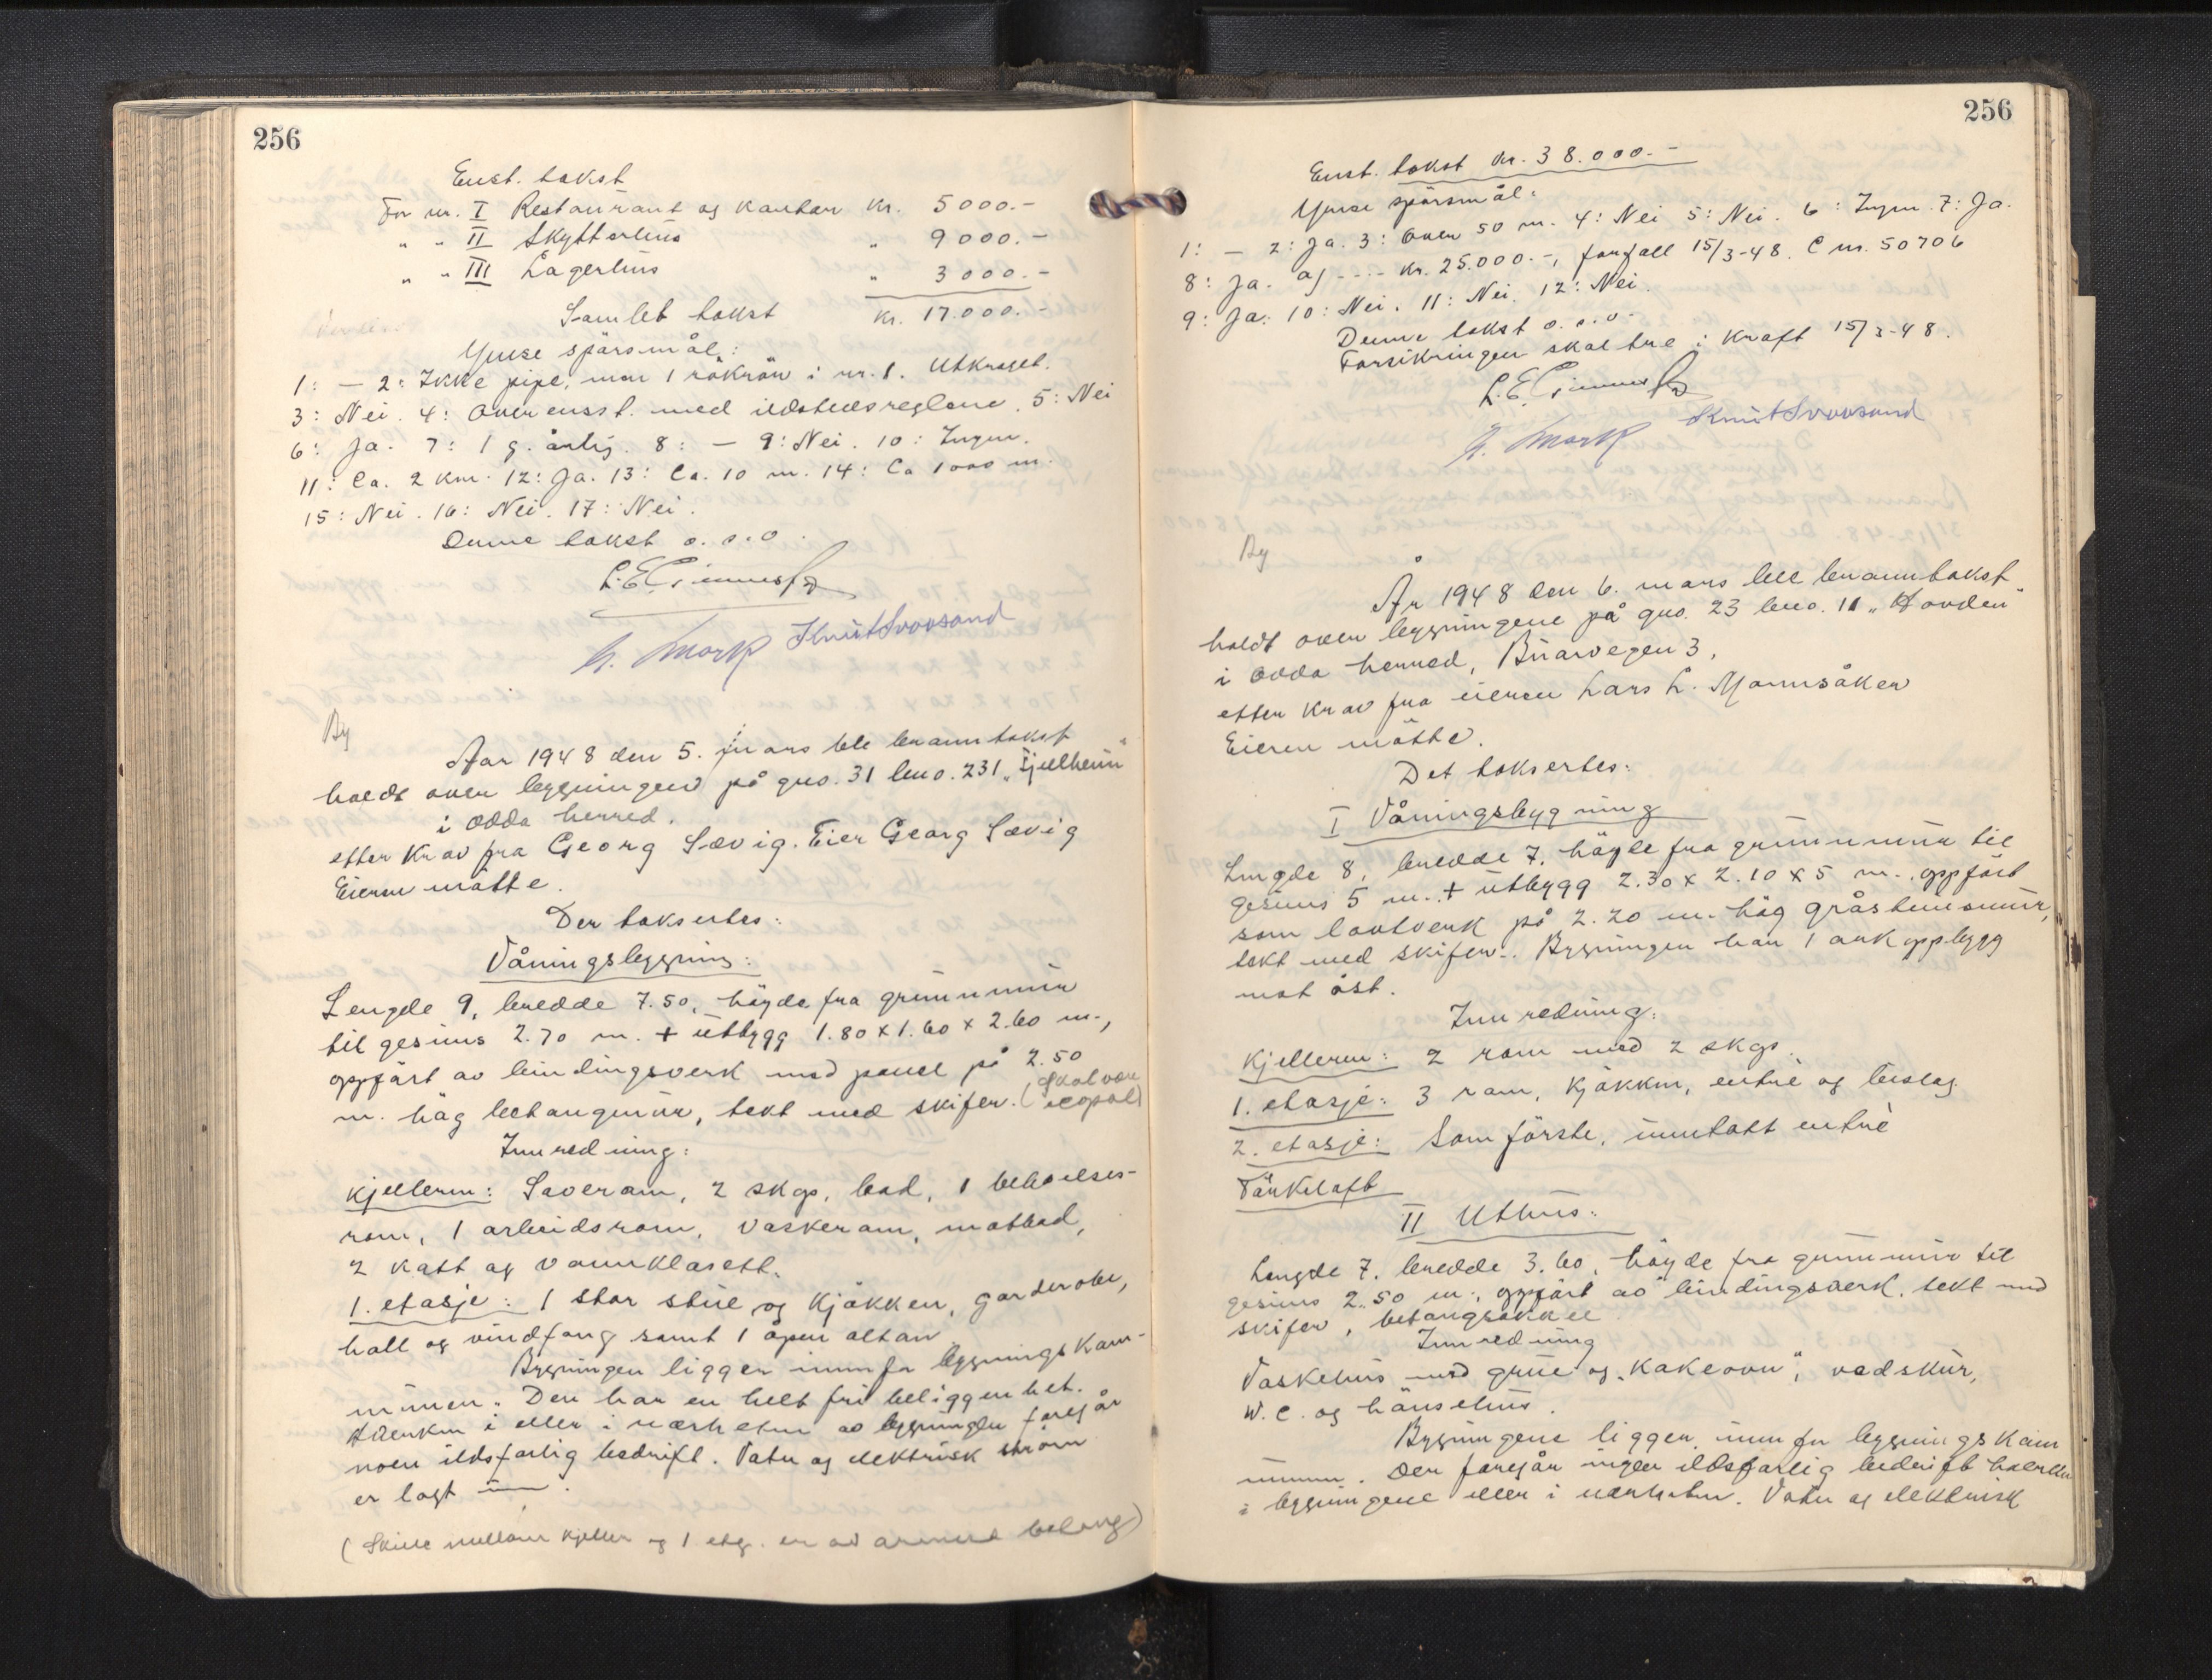 256
Enst. takst
For nr. I Restaurant og kontor kr. 5000.-
" " II Skytterhus " 9000.-
" " III Lagerhus " 3000.-
Samlet takst kr. 17.000.-
Ymse spørsmål:
1: — 2: Ikke pipe, men 1 rökrör i nr. 1. Utkraget.
3: Nei. 4: Overensst. med ildstedsreglene. 5: Nei
6: Ja. 7: 1 g. årlig. 8: — 9: Nei. 10: Ingen.
11: Ca. 2 km. 12: Ja. 13: Ca. 10 m. 14: Ca 1000 m.
15: Nei. 16: Nei. 17: Nei.
Denne takst o.s.v.
Knut
By
Aar 1948 den 5. mars ble branntakst
holdt over bygningen på gno. 31 bno. 231 "Fjellheim"
i Odda herred.
etter krav fra Georg Sævig. Eier Georg Sævig
Eieren mötte.
Der taksertes:
Våningsbygning:
Lengde 9, bredde 7.50, höyde fra grunnmur
til gesims 2.70 m. + utbygg 1.80 x 1.60 x 2.60 m.,
oppfört av bindingsverk med panel på 2.50
m. høg betongmur, tekt med skifer. (skal være
icopal)
Innredning:
Kjelleren: Soverom, 2 skgs, bad, 1 behvelses-
rom, 1 arbeidsrom, vaskerom, matbod,
2 kott og vannklosett.
1. etasje: 1 stor stue og kjökken, garderobe,
hall og vindfang samt 1 åpen altan
Bygningen ligger innenfor bygningskom-
munen. Den har en helt fri beliggenhet.
Hverken i eller i nærheten av bygningen foregår
noen ildsfarlig bedrift. Vatn og elektrisk ström
er lagt inn.
(Skille mellom kjeller og 1 etg. er av armert betong)
256
Enst. takst kr. 38.000.-
Ymse spörsmål:
1: — 2: Ja. 3: Over 50 m. 4: Nei 5: Nei. 6: Ingen. 7: Ja.
8: Ja. a) ---- kr. 25.000.-, forfall 15/3-48. C nr. 50706
9: Ja. 10: Nei. 11: Nei. 12: Nei.
Denne takst o.s.v.
Forsikringen skal tre i kraft 15/3-48.
Knut
By
År 1948 den 6. mars ble branntakst
holdt over bygningene på gno. 23 bno. 11 "Hovden"
i Odda herred, Buarvegen 3,
etter krav fra eieren Lars L. Mannsåker
Eieren mötte.
Det taksertes:
I Våningsbygning
Lengde 8, bredde 7, höyde fra grunnmur til
gesims 5 m. + utbygg 2.30 x 2.10 x 5 m., oppfört
som laftverk på 2.20 m. hög gråsteinsmur,
tekt med skifer. Bygningen har 1 arkoppbygg
mot öst.
Innredning:
Kjelleren: 2 rom med 2 skgs.
1. etasje: 3 rom, kjökken, entré og bislag
2. etasje: Som förste, inntatt entré
Törkeloft
II Uthus:
Lengde 7, bredde 3.60, höyde fra grunnmur til
gesims 2.50 m., oppfört av bindingsverk, tekt med
skifer, betongsokkel
Innredning
Vaskehus med grue og "kakeovn", vedskur,
W.C. og hönsehus.
Bygningene ligger innenfor bygningskom
munen. Der foregår ingen ildsfarlig bedrift hverken
i bygningene eller i nærheten. Vatn og elektrisk